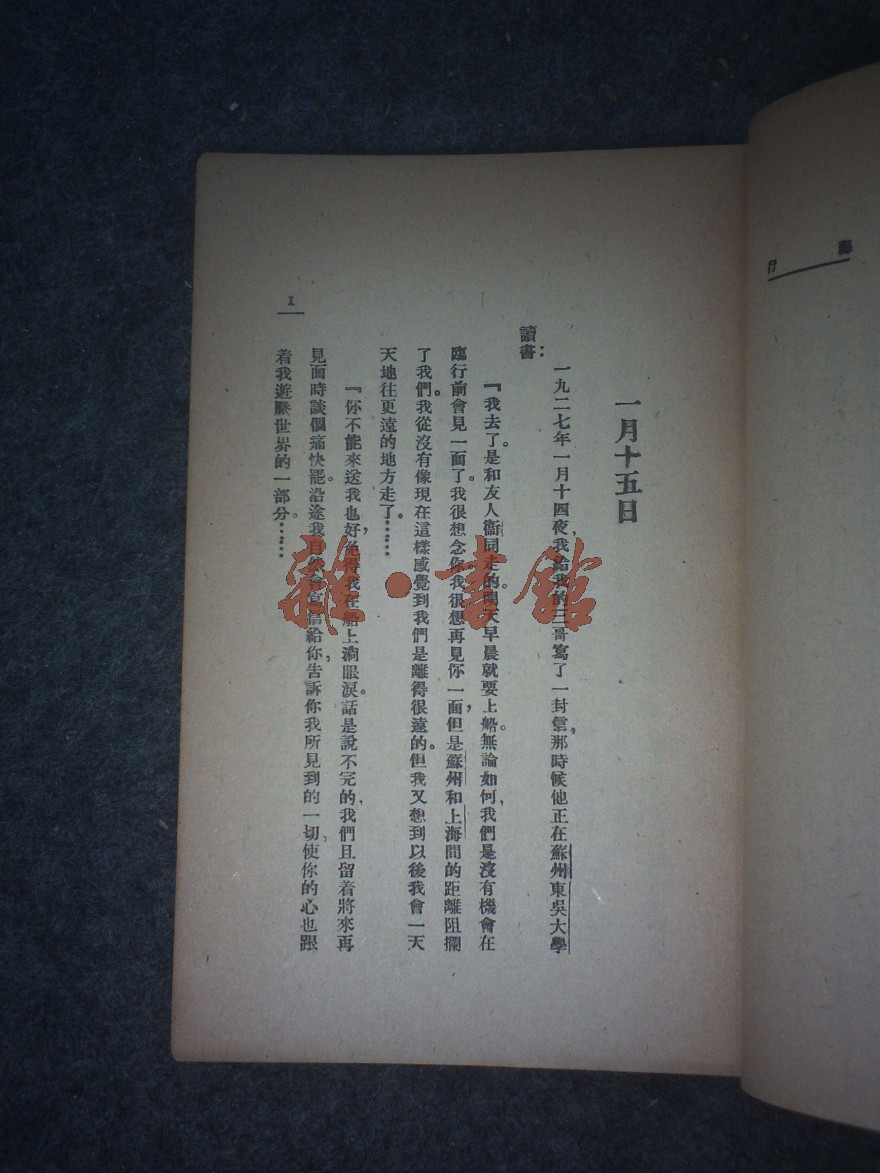 海行
一月十五日
一九二七年一月十四夜，我給我的三哥寫了一封信，那時候他正在蘇州東吳大學
讀書：
『我去了。是和友人衞同走的。明天早晨就要上船。無論如何，我們是沒有機會在
臨行前會見一面了。我很想念你，我很想再見你一面，但是蘇州和上海間的距離阻攔
了我們。我從沒有像現在這樣感覺到我們是離得很遠的。但我又想到以後我會一天
天地往更遠的地方走了。……
『你不能來送我也好，免得我在船上淌眼淚。話是說不完的，我們且留着將來再
見面時談個痛快罷。沿途我自然會寫信給你，告訴你我所見到的一切，使你的心也跟
着我遊歷世界的一部分。……
1
雜·書館